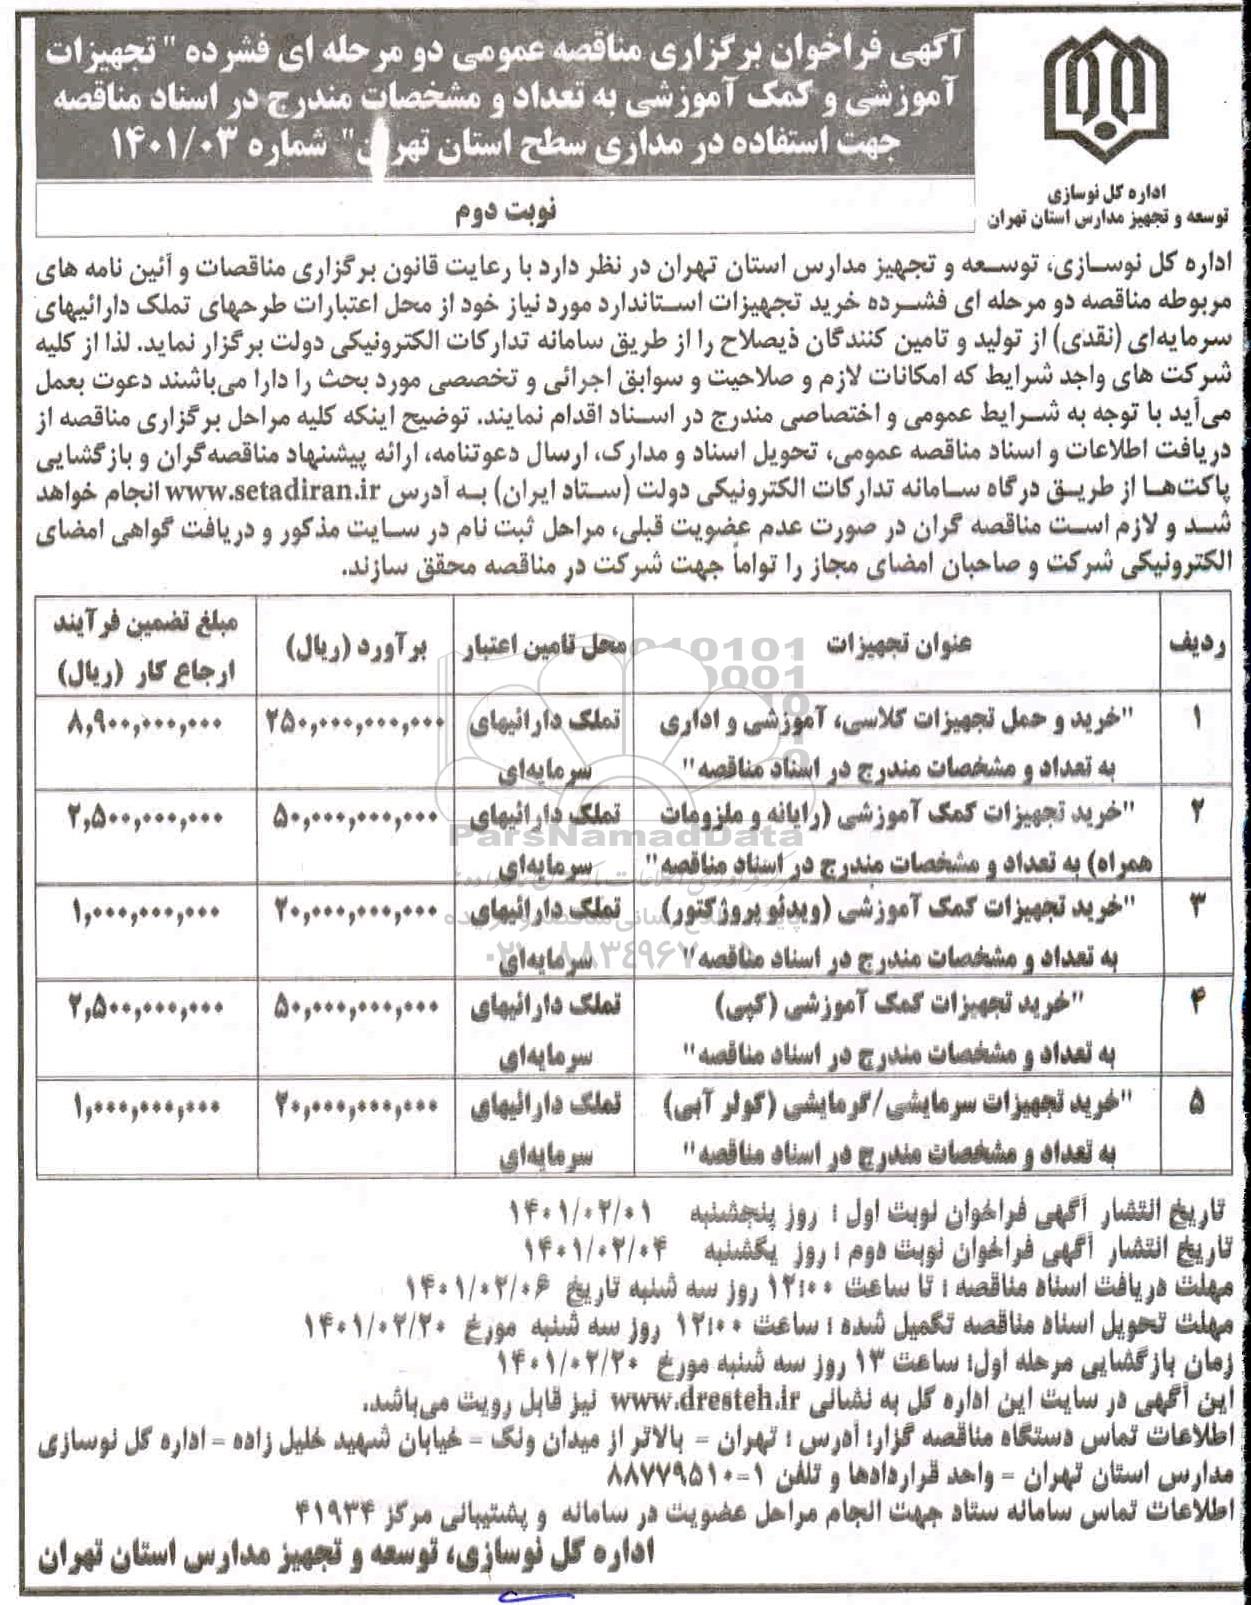 آگهی فراخوان برگزاری مناقصه عمومی دو مرحله ای فشرده " تجهیزات
آموزشی و کمک آموزشی به تعداد و مشخصات مندرج در اسناد مناقصه
جهت استفاده در مداری سطح استان تهران" شماره ۱۴۰۱/۰۳
اداره کل نوسازی
توسعه و تجهیز مدارس استان تهران
نوبت دوم
اداره کل نوسازی، توسعه و تجهیز مدارس استان تهران در نظر دارد با رعایت قانون برگزاری مناقصات و آئین نامه های
مربوطه مناقصه دو مرحله ای فشرده خرید تجهیزات استاندارد مورد نیاز خود از محل اعتبارات طرحهای تملک دارائیهای
سرمایه‌ای (نقدی) از تولید و تامین کنندگان ذیصلاح را از طریق سامانه تدارکات الکترونیکی دولت برگزار نماید. لذا از کلیه
شرکت های واجد شرایط که امکانات لازم و صلاحیت و سوابق اجرائی و تخصصی مورد بحث را دارا می‌باشند دعوت بعمل
می‌آید با توجه به شرایط عمومی و اختصاصی مندرج در اسناد اقدام نمایند. توضیح اینکه کلیه مراحل برگزاری مناقصه از
دریافت اطلاعات و اسناد مناقصه عمومی، تحویل اسناد و مدارک، ارسال دعوتنامه، ارائه پیشنهاد مناقصه‌گران و بازگشایی
پاکت‌ها از طریق درگاه سامانه تدارکات الکترونیکی دولت (ستاد ایران) به آدرس www.setadiran.ir انجام خواهد
شد و لازم است مناقصه گران در صورت عدم عضویت قبلی، مراحل ثبت نام در سایت مذکور و دریافت گواهی امضای
الکترونیکی شرکت و صاحبان امضای مجاز را تواماً جهت شرکت در مناقصه محقق سازند.
ردیف عنوان تجهیزات محل تامین اعتبار برآورد (ریال) مبلغ تضمین فرآیند ارجاع کار (ریال)
۱ "خرید و حمل تجهیزات کلاسی، آموزشی و اداری تملک دارائیهای ۲۵۰,۰۰۰,۰۰۰,۰۰۰ ۸,۹۰۰,۰۰۰,۰۰۰
به تعداد و مشخصات مندرج در اسناد مناقصه" سرمایه‌ای
۲ "خرید تجهیزات کمک آموزشی (رایانه و ملزومات تملک دارائیهای ۵۰,۰۰۰,۰۰۰,۰۰۰ ۲,۵۰۰,۰۰۰,۰۰۰
همراه) به تعداد و مشخصات مندرج در اسناد مناقصه" سرمایه‌ای
۳ "خرید تجهیزات کمک آموزشی (ویدئو پروژکتور) تملک دارائیهای ۲۰,۰۰۰,۰۰۰,۰۰۰ ۱,۰۰۰,۰۰۰,۰۰۰
به تعداد و مشخصات مندرج در اسناد مناقصه" سرمایه‌ای
۴ "خرید تجهیزات کمک آموزشی (کپی) تملک دارائیهای ۵۰,۰۰۰,۰۰۰,۰۰۰ ۲,۵۰۰,۰۰۰,۰۰۰
به تعداد و مشخصات مندرج در اسناد مناقصه" سرمایه‌ای
۵ "خرید تجهیزات سرمایشی/گرمایشی (کولر آبی) تملک دارائیهای ۲۰,۰۰۰,۰۰۰,۰۰۰ ۱,۰۰۰,۰۰۰,۰۰۰
به تعداد و مشخصات مندرج در اسناد مناقصه" سرمایه‌ای
ParsNamadData
تاریخ انتشار آگهی فراخوان نوبت اول : روز پنجشنبه ۱۴۰۱/۰۲/۰۱
تاریخ انتشار آگهی فراخوان نوبت دوم : روز یکشنبه ۱۴۰۱/۰۲/۰۴
مهلت دریافت اسناد مناقصه : تا ساعت ۱۲:۰۰ روز سه شنبه تاریخ ۱۴۰۱/۰۲/۰۶
مهلت تحویل اسناد مناقصه تکمیل شده : ساعت ۱۲:۰۰ روز سه شنبه مورخ ۱۴۰۱/۰۲/۲۰
زمان بازگشایی مرحله اول: ساعت ۱۳ روز سه شنبه مورخ ۱۴۰۱/۰۲/۲۰
این آگهی در سایت این اداره کل به نشانی www.dresteh.ir نیز قابل رویت می‌باشد.
اطلاعات تماس دستگاه مناقصه گزار: آدرس : تهران - بالاتر از میدان ونک - خیابان شهید خلیل زاده - اداره کل نوسازی
مدارس استان تهران - واحد قراردادها و تلفن ۱-۸۸۷۷۹۵۱۰
اطلاعات تماس سامانه ستاد جهت انجام مراحل عضویت در سامانه و پشتیبانی مرکز ۴۱۹۳۴
اداره کل نوسازی، توسعه و تجهیز مدارس استان تهران